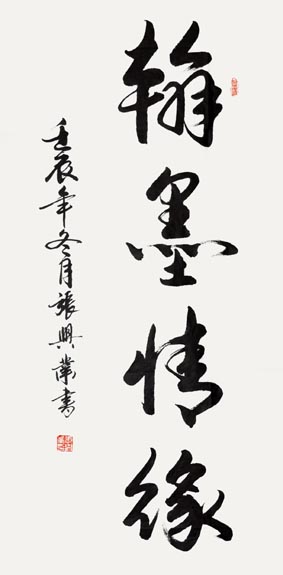 翰墨情缘
壬辰年冬月張興業書